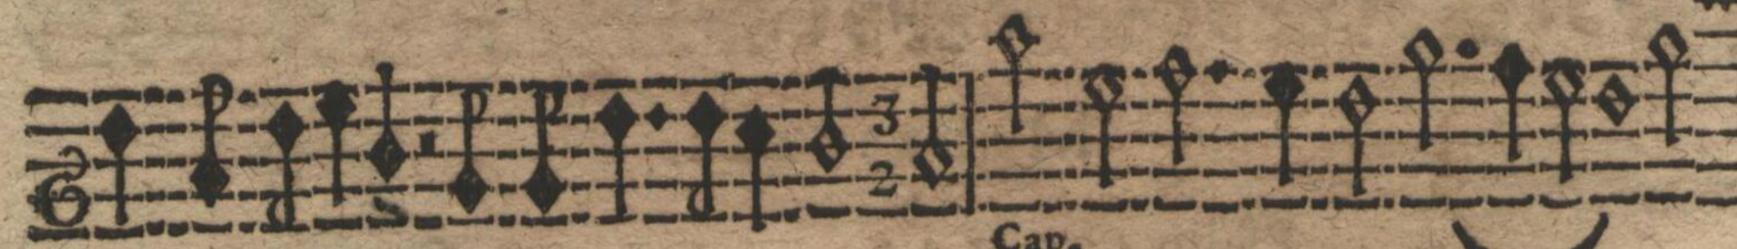 3
2
Cap.